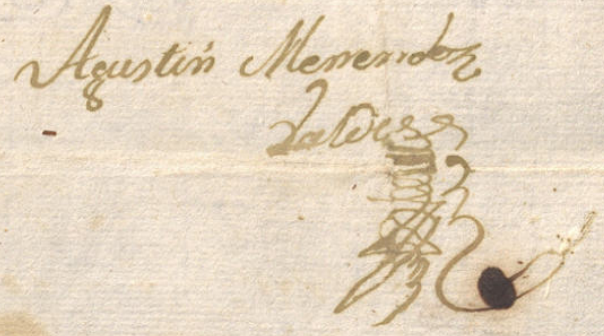 Agustin Menendez
Valdes